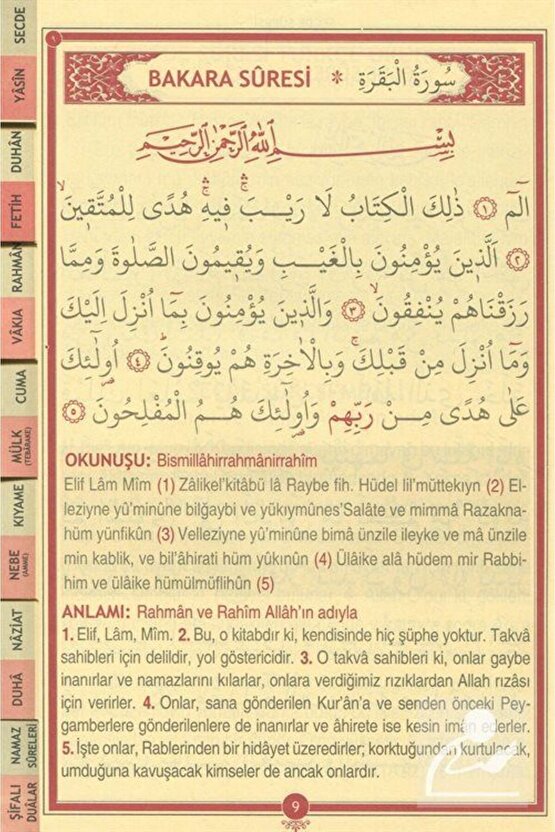 SECDE
YÂSİN
DUHÂN
FETİH
RAHMÂN
VÂKIA
CUMA
MÜLK
(TEBÂRAKE)
KIYAME
NEBE
(AMME)
NÂZİAT
DUHÂ
NAMAZ
SÛRELERİ
ŞİFALI
DUÂLAR
٩
BAKARA SÛRESİ * سُورَةُ الْبَقَرَةِ
بِسْمِ اللّٰهِ الرَّحْمٰنِ الرَّحِيمِ
الٓمٓ ﴿١﴾ ذٰلِكَ الْكِتَابُ لَا رَيْبَۚۛ فٖيهِۚۛ هُدًى لِلْمُتَّقٖينَۙ
﴿٢﴾ اَلَّذٖينَ يُؤْمِنُونَ بِالْغَيْبِ وَيُقٖيمُونَ الصَّلٰوةَ وَمِمَّا
رَزَقْنَاهُمْ يُنْفِقُونَۙ ﴿٣﴾ وَالَّذٖينَ يُؤْمِنُونَ بِمَٓا اُنْزِلَ اِلَيْكَ
وَمَٓا اُنْزِلَ مِنْ قَبْلِكَۚ وَبِالْاٰخِرَةِ هُمْ يُوقِنُونَۜ ﴿٤﴾ اُولٰٓئِكَ
عَلٰى هُدًى مِنْ رَبِّهِمْ وَاُولٰٓئِكَ هُمُ الْمُفْلِحُونَ ﴿٥﴾
OKUNUŞU: Bismillâhirrahmânirrahîm
Elif Lâm Mîm (1) Zâlikel'kitâbü lâ Raybe fih. Hüdel lil'müttekıyn (2) El-
leziyne yü'minûne bilğaybi ve yükıymûnes'Salâte ve mimmâ Razakna-
hüm yünfikûn (3) Velleziyne yü'minûne bimâ ünzile ileyke ve mâ ünzile
min kablik, ve bil'âhirati hüm yûkınûn (4) Ülâike alâ hüdem mir Rabbi-
him ve ülâike hümülmüflihûn (5)
ANLAMI: Rahmân ve Rahîm Allâh'ın adıyla
1. Elif, Lâm, Mîm. 2. Bu, o kitabdır ki, kendisinde hiç şüphe yoktur. Takvâ
sahibleri için delildir, yol göstericidir. 3. O takvâ sahibleri ki, onlar gaybe
inanırlar ve namazlarını kılarlar, onlara verdiğimiz rızıklardan Allah rızâsı
için verirler. 4. Onlar, sana gönderilen Kur'ân'a ve senden önceki Pey-
gamberlere gönderilenlere de inanırlar ve âhirete ise kesin imân ederler.
5. İşte onlar, Rablerinden bir hidâyet üzeredirler; korktuğundan kurtulacak,
umduğuna kavuşacak kimseler de ancak onlardır.
9